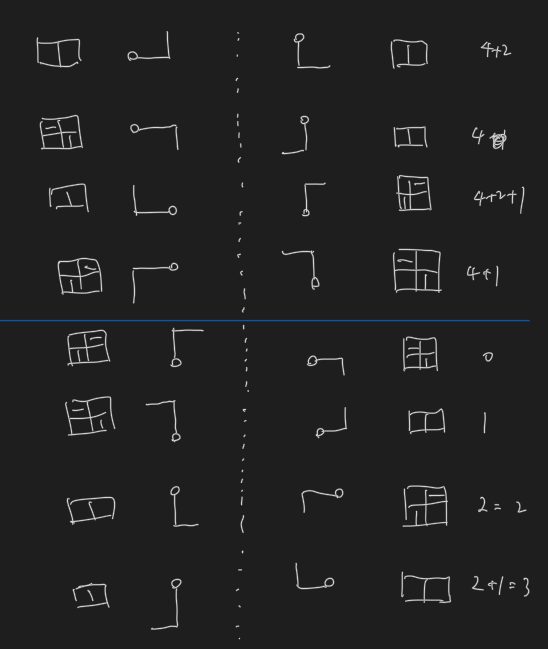 4+2
4
4+2+1
4+1
0
1
2 = 2
2+1=3